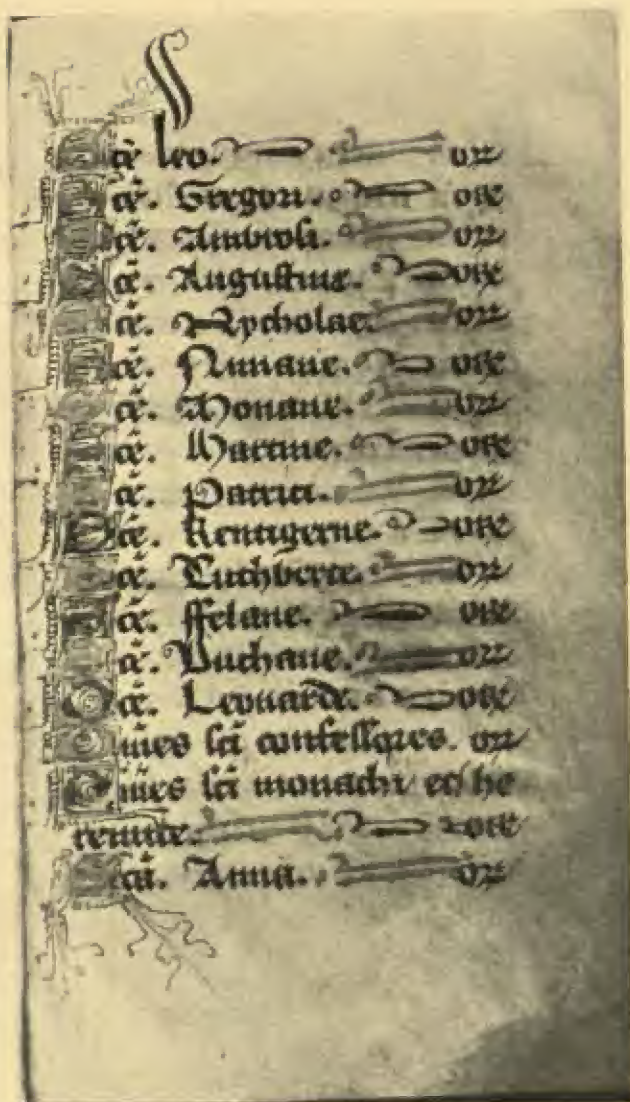 Sce leo. or
Sce. Gregori. ore
Sce. Ambrosi. or
Sce. Augustine. ore
Sce. Nycholae. or
Sce. Niniane. ore
Sce. Monane. or
Sce. Martine. ore
Sce. Patrici. or
Sce. Kentigerne. ore
Sce. Cuthberte. or
Sce. ffelane. ore
Sce. Duthane. or
Sce. Leonarde. ore
Omes sci confessores. or
Omes sci monachi et he
remite. ore
Sca. Anna. or